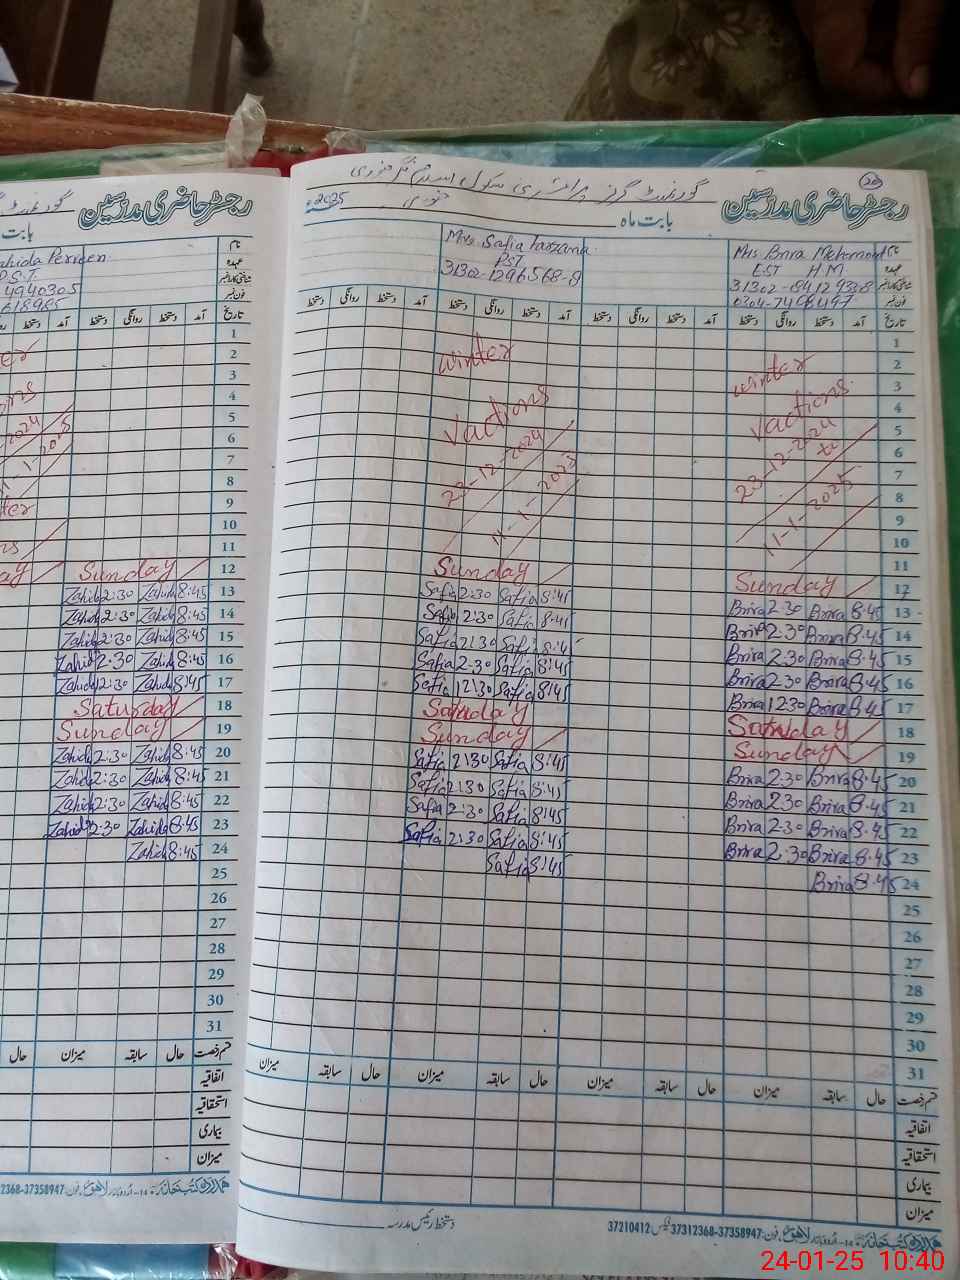 رجسٹر حاضری مدرسین
بابت
Zahida Perveen
P.S.T.
4940305
618985
نام
عہدہ
شناختی کارڈ نمبر
فون نمبر
آمد دستخط روانگی دستخط آمد تاریخ
1
2
3
4
5
6
7
8
9
10
11
Sunday 12
Zahida 2:30 Zahida 8:45 13
Zahida 2:30 Zahida 8:45 14
Zahida 2:30 Zahida 8:45 15
Zahida 2:30 Zahida 8:45 16
Zahida 2:30 Zahida 8:45 17
Saturday 18
Sunday 19
Zahida 2:30 Zahida 8:45 20
Zahida 2:30 Zahida 8:45 21
Zahida 2:30 Zahida 8:45 22
Zahida 2:30 Zahida 8:45 23
Zahida 8:45 24
25
26
27
28
29
30
31
قسم رخصت حال سابقہ میزان حال
اتفاقیہ
استحقاقیہ
بیماری
میزان
2368-37358947
20
گورنمنٹ گرلز پرائمری سکول اسلام نگر
رجسٹر حاضری مدرسین
بابت ماہ جنوری 2025
نام Mrs Bnira Mehmood Mrs Safia Farzana
عہدہ EST HM PST
شناختی کارڈ نمبر 31302-0412933-8 31302-1296568-8
فون نمبر 0304-7406497
تاریخ آمد دستخط روانگی دستخط آمد دستخط روانگی دستخط آمد دستخط روانگی دستخط روانگی دستخط
1
winter winter 2
3
Vactions Vactions 4
5
23-12-2024 23-12-2024 6
to 7
11-1-2025 11-1-2025 8
9
10
11
Sunday Sunday 12
Safia 2:30 Safia 8:45 Bnira 2:30 Bnira 8:45 13
Safia 2:30 Safia 8:45 Bnira 2:30 Bnira 8:45 14
Safia 2:30 Safia 8:45 Bnira 2:30 Bnira 8:45 15
Safia 2:30 Safia 8:45 Bnira 2:30 Bnira 8:45 16
Safia 12:30 Safia 8:45 Bnira 12:30 Bnira 8:45 17
Saturday 18
Sunday Sunday 19
Safia 2:30 Safia 8:45 Bnira 2:30 Bnira 8:45 20
Safia 2:30 Safia 8:45 Bnira 2:30 Bnira 8:45 21
Safia 2:30 Safia 8:45 Bnira 2:30 Bnira 8:45 22
Safia 2:30 Safia 8:45 Bnira 2:30 Bnira 8:45 23
Safia 8:45 Bnira 8:45 24
25
26
27
28
29
30
31
قسم رخصت حال سابقہ میزان حال سابقہ میزان حال سابقہ میزان حال سابقہ میزان
اتفاقیہ
استحقاقیہ
بیماری
میزان
دستخط رئیس مدرسہ
37312368-37358947 فیکس 37210412
24-01-25 10:40